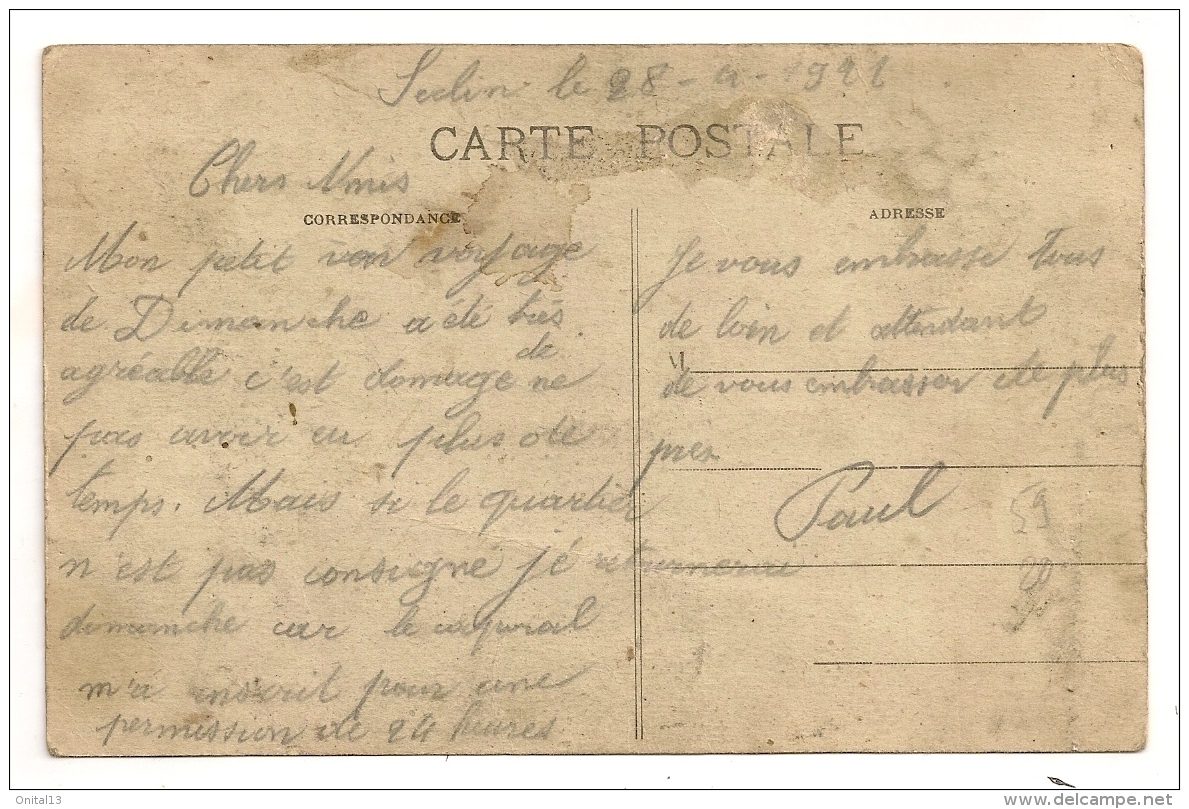 le 28 - 4 - 1921
CARTE POSTALE
Chers Amis
CORRESPONDANCE
Mon petit voyage
de Dimanche a été très
agréable c'est domage de ne
pas avoir eu plus de
temps. Mais si le quartier
n'est pas consigné jé retournerai
dimanche car le caporal
m'a inscrit pour une
permission de 24 heures
ADRESSE
Je vous embrasse tous
de loin et attendant
M
de vous embrasser de plus
pres
Paul
59
Onital13
delcampe.net